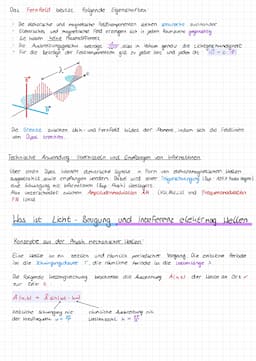 Das Fernfeld besitzt folgende Eigenschaften:
· Die elektrische und magnetische Feldkomponenten stehen senkrecht aufeinander
· Elektrisches und magnetisches Feld erzeugen sich in jedem Raumpunkte gegenseitig
· Sie haben keine Phasendifferenz
· Die Ausbreitungsgeschw. beträgt was in Vakuum genau die Lichtgeschwindigkeit
· Für die Beträge der Feldkomponenten gilt zu jeder Zeit und jedem Ort
Die Grenze zwischen Nah- und Fernfeld bildet der Abstand, indem sich die Feldlinien
vom Dipol trennen.
Technische Anwendung: Übermitteln und Empfangen von Informationen
Über einen Dipol können elektrische Signale in Form von elektromagnetischen Wellen
ausgestrahlt sowie empfangen werden. Dabei wird einer Trägerschwingung
eine Schwingung mit Informationen (Bsp. Musik) überlagert.
Man unterscheidet zwischen Amplitudenmodulation AM und Frequenzmodulation
FM
Was ist Licht - Beugung und Interferenz elektromag. Wellen
Konzepte aus der Physik mechanischer Wellen
Eine Welle ist ein zeitlich und räumlich periodischer Vorgang. Die zeitliche Periode
ist die Schwingungsdauer T, die räumliche Periode ist die Wellenlänge λ.
Die folgende Wellengleichung beschreibt die Auslenkung A(x,t) der Welle am Ort x
zur Zeit t: